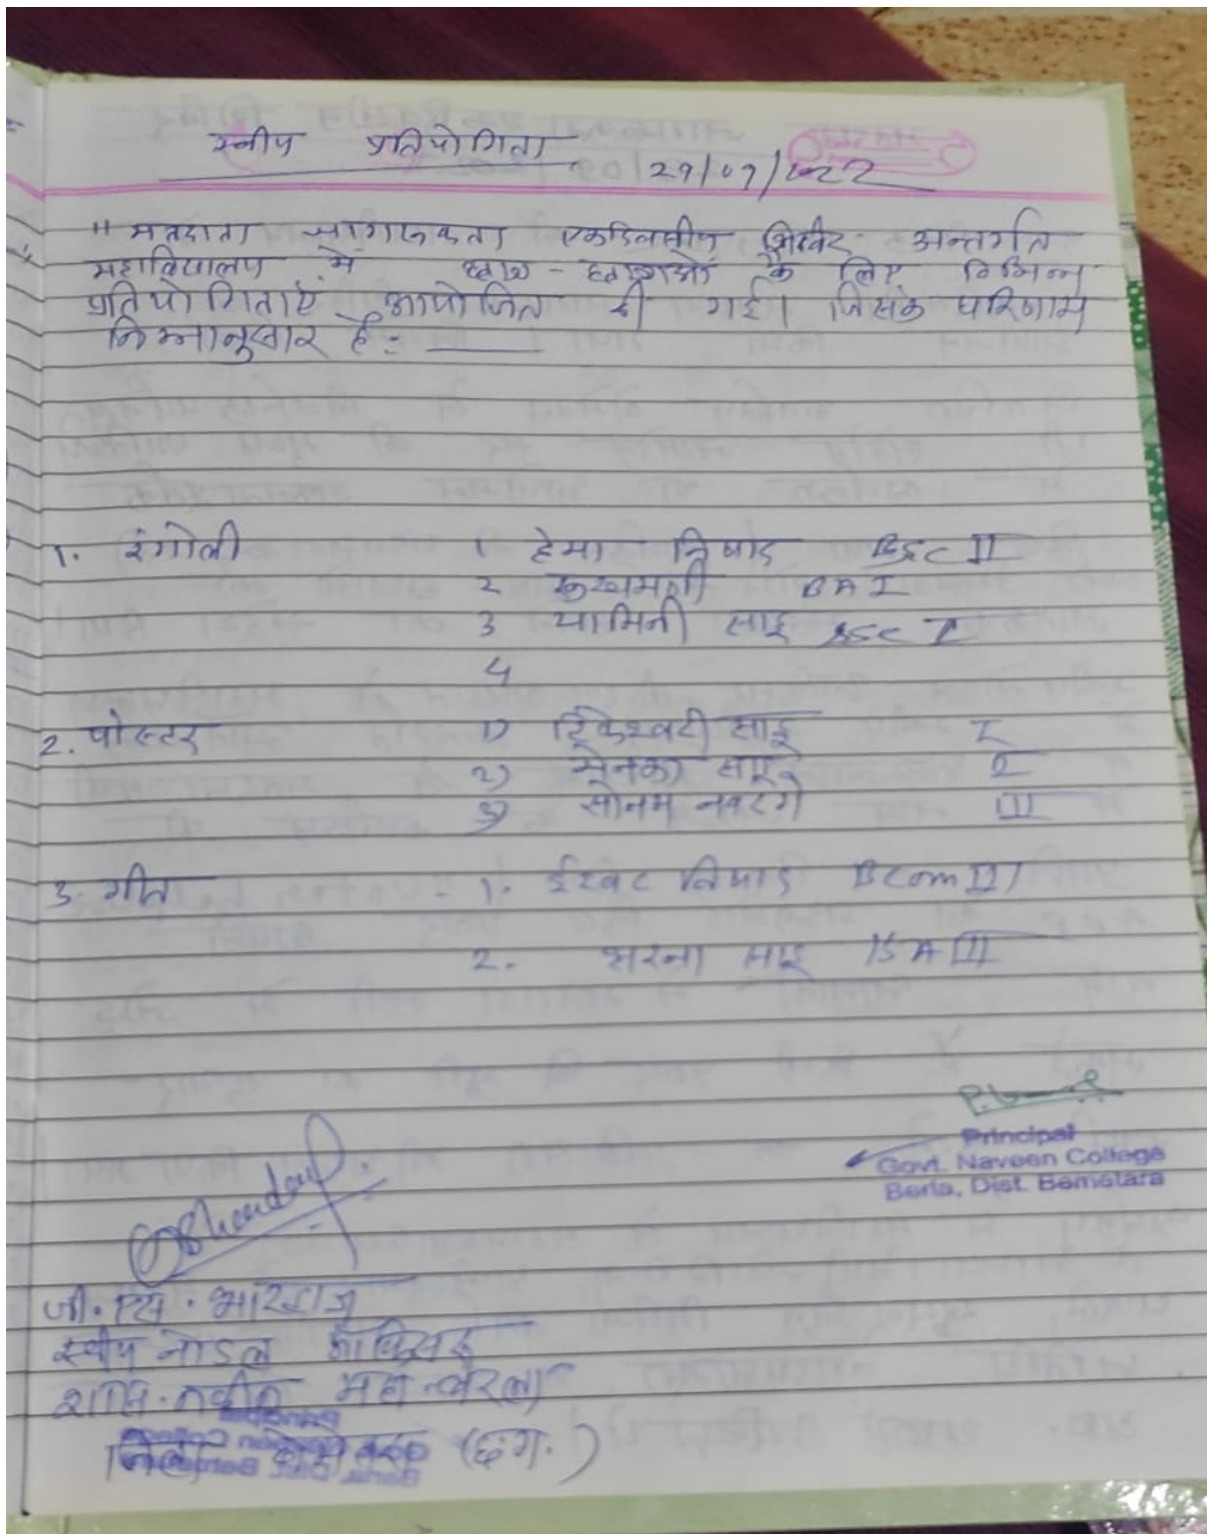 स्वीप प्रतियोगिता
29/09/2022
" मतदाता जागरूकता एकदिवसीय शिविर अन्तर्गत
महाविद्यालय में छात्र - छात्राओं के लिए विभिन्न
प्रतियोगिताएं आयोजित की गई। जिसके परिणाम
निम्नानुसार है :-
1. रंगोली 1 हेमा निषाद BSc II
2 BA I
3 यामिनी साहू BSC I
4
2. पोस्टर 1) टिकेश्वरी साहू I
2) मेनका साहू II
3) सोनम नवरंगे III
3. गीत - 1. ईश्वर निषाद BCom II
2. झरना साहू BA III
Principal
Govt. Naveen College
Berla, Dist. Bemetara
जी. एस. भारद्वाज
स्वीप नोडल आफिसर
शास. नवीन महा. बेरला
जिला बेमेतरा (छ.ग.)